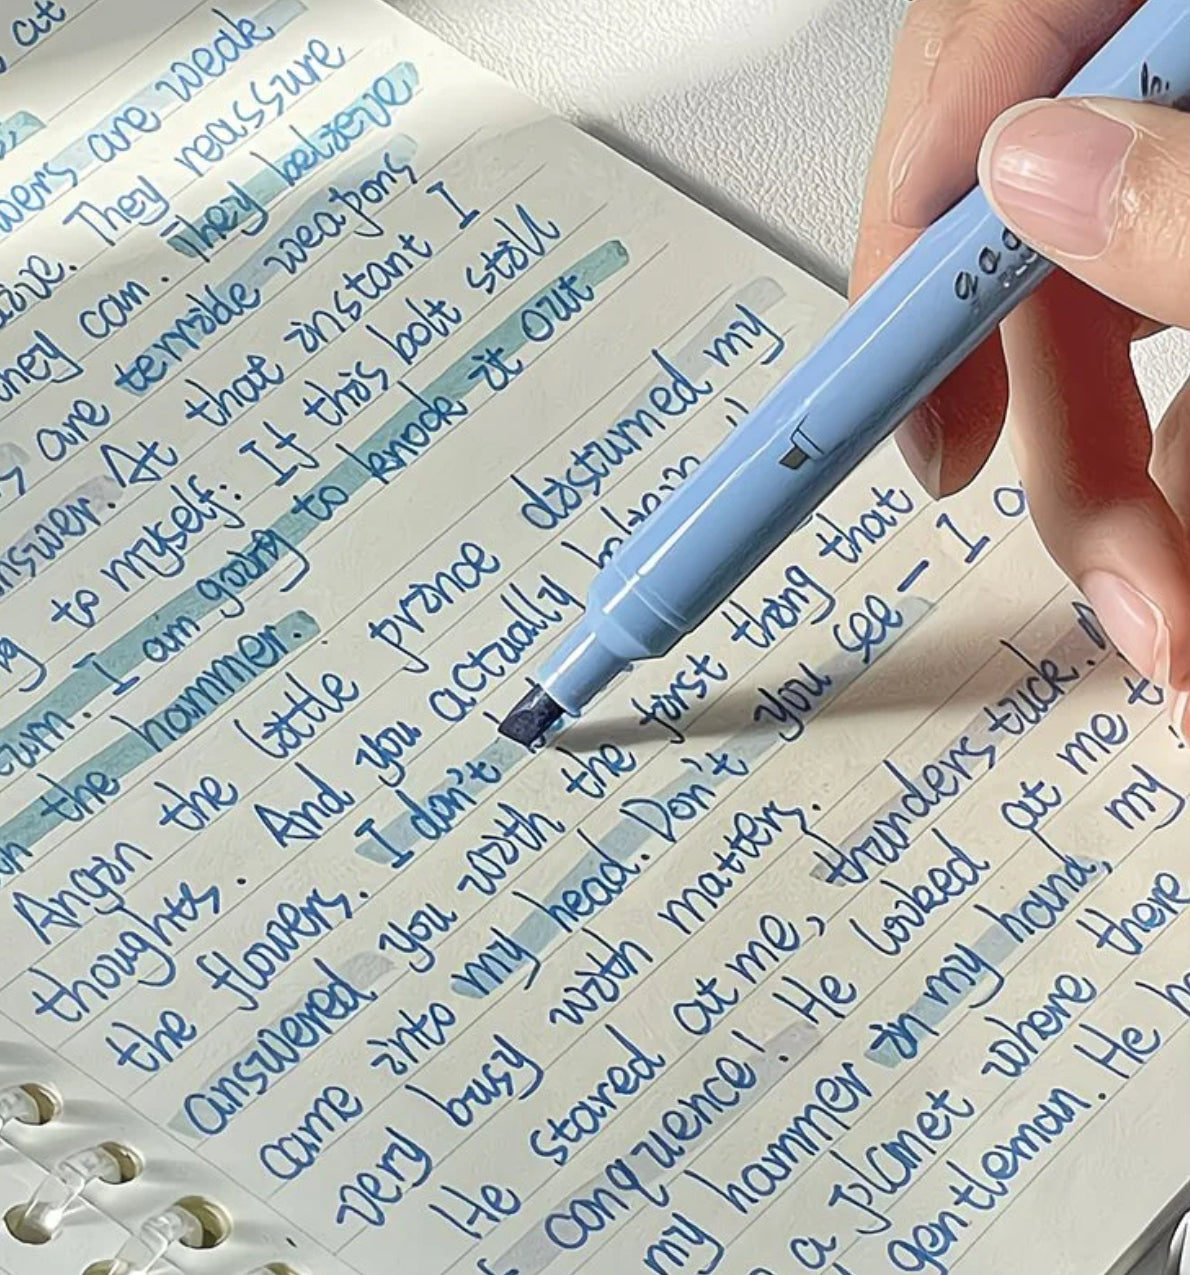 at
are weak
They reassure
they can. They believe
are terrible weapons
answer. At that instant I
to myself: If this bolt still
turn. I am going to knock it out
the hammer.
Angin the little prince disturned my
thoughts. And you actually
the flowers. I don't
answered you with the first thing that
came into my head. Don't you see - I
very busy with matters.
He stared at me, thunderstruck.
conquence! He looked at me
my hammer in my hand, my
a planet where there
gentleman. He